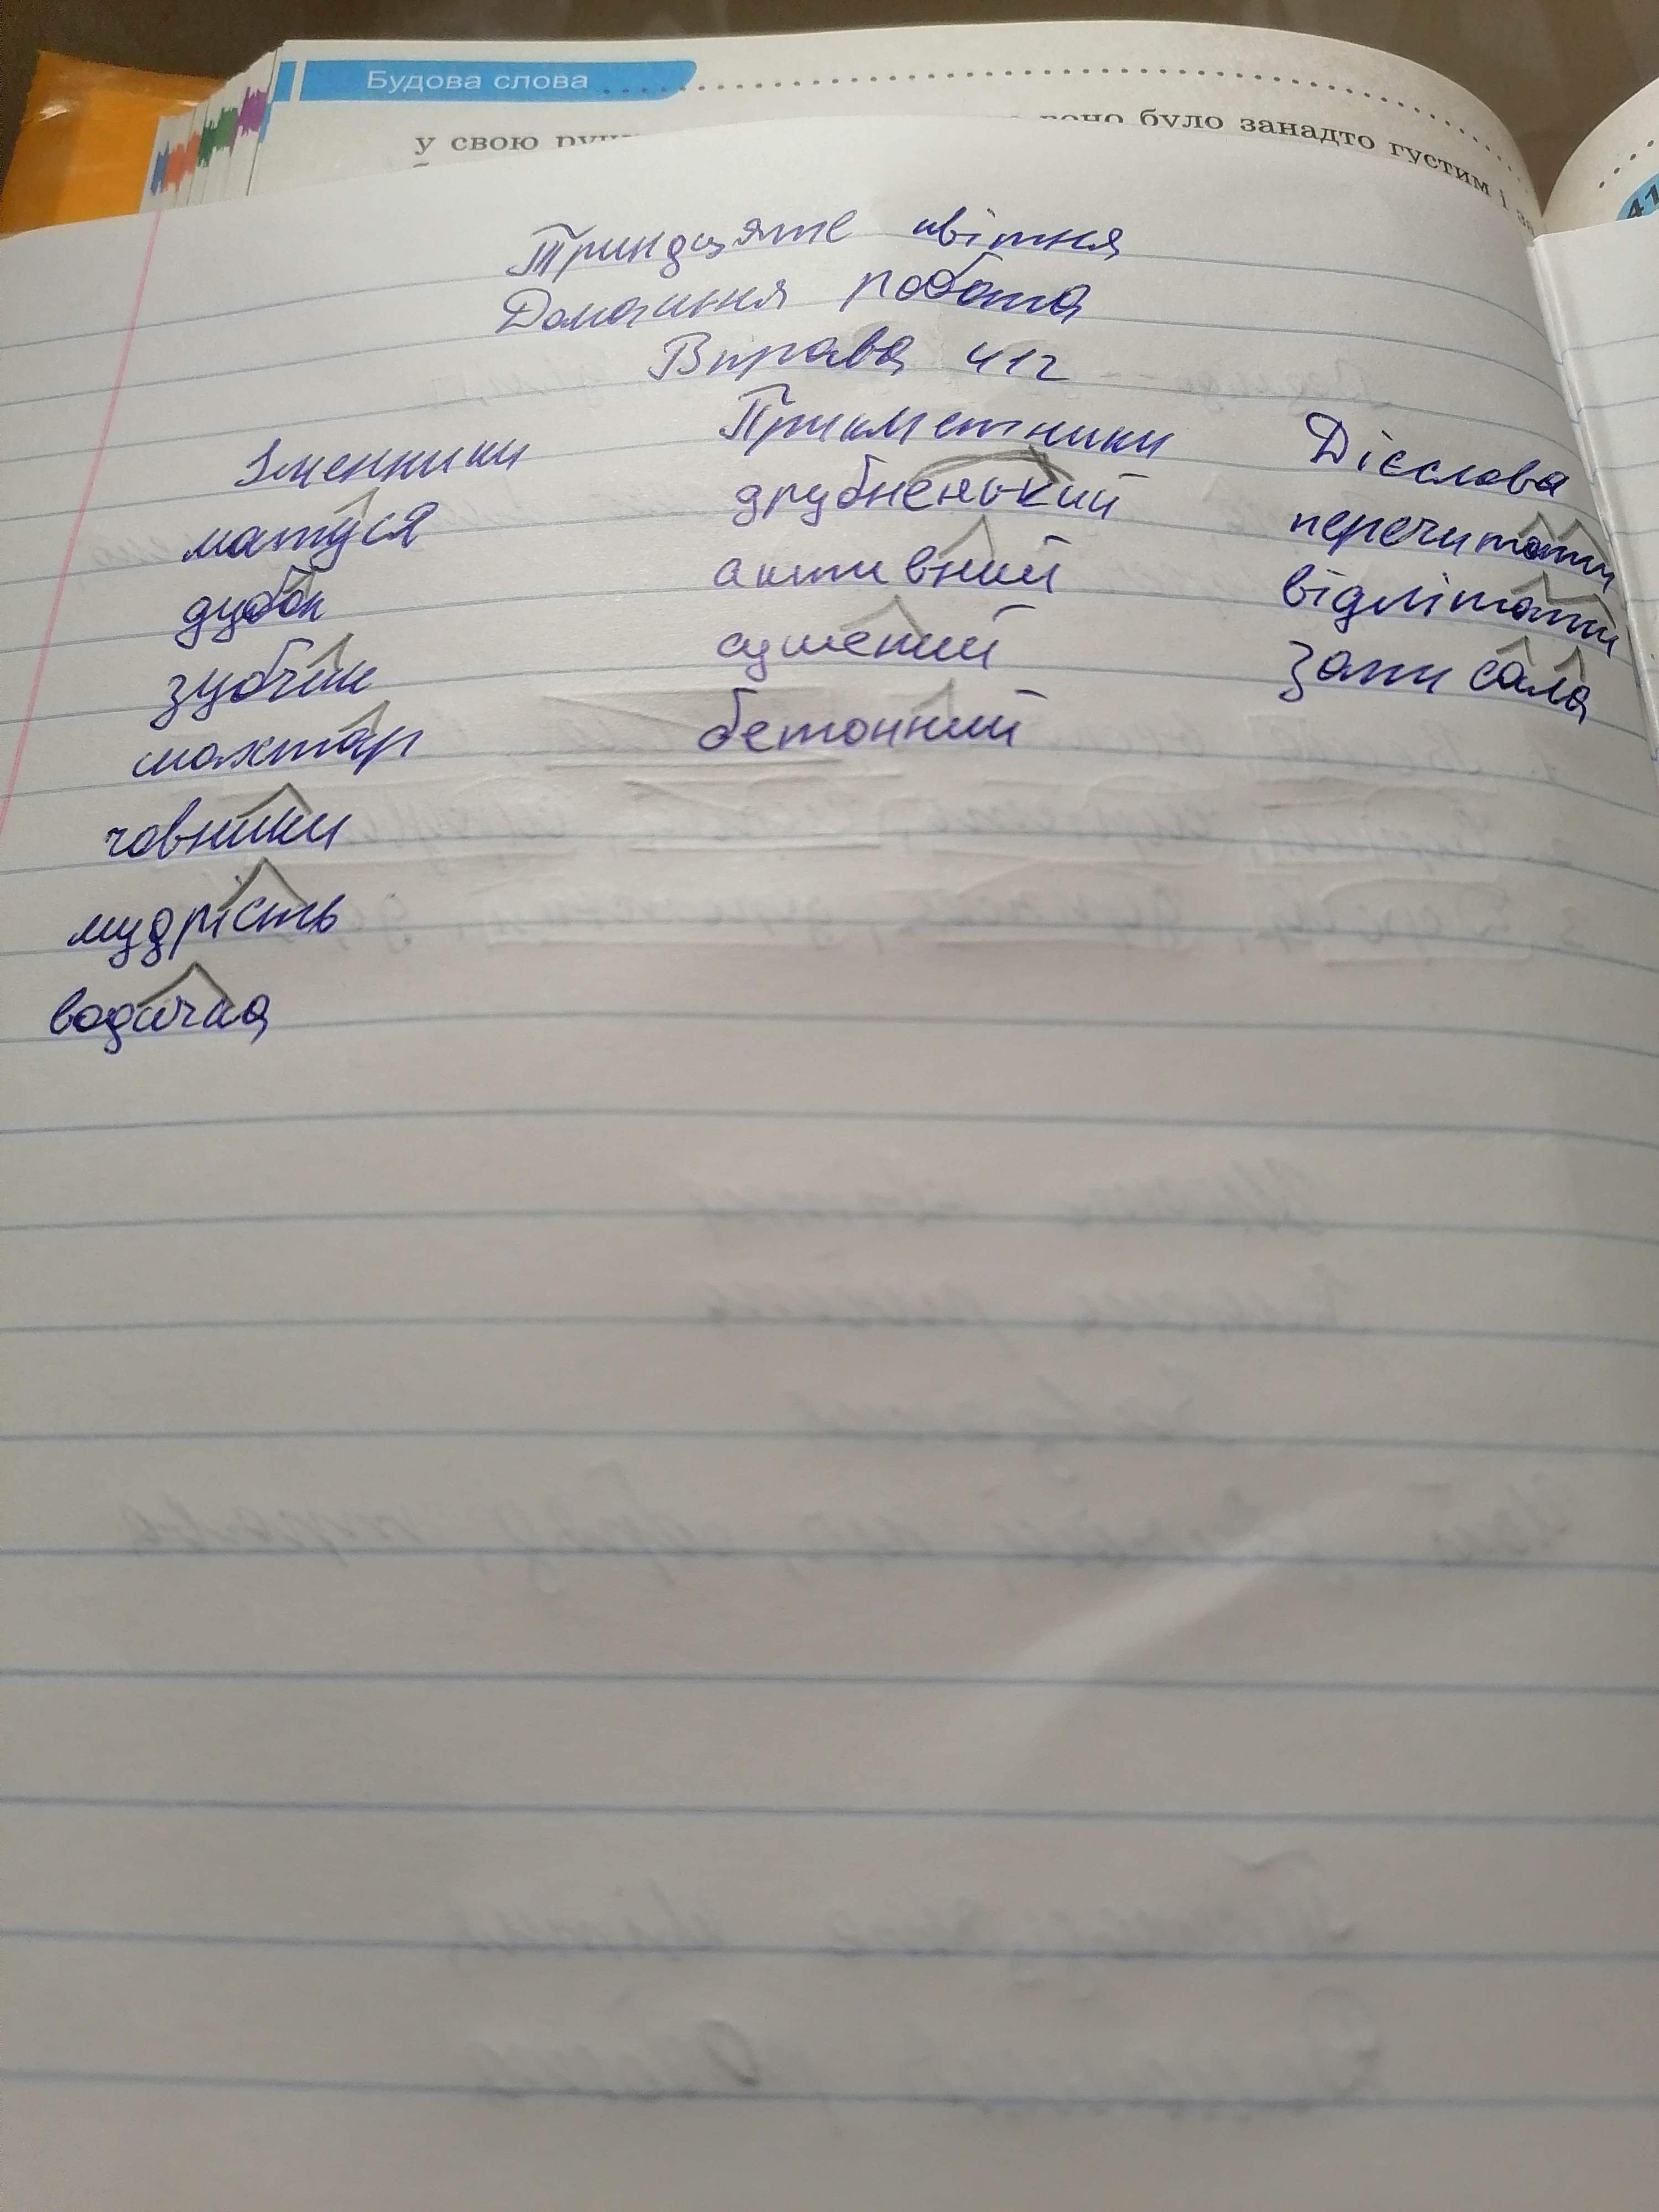 Будова слова
у свою було занадто густим і
41
Тридцяте квітня
Домашня робота
Вправа 412
Іменники Прикметники Дієслова
матуся друбненький перечитати
дубок активний відлітати
зубчик сушений записала
махтар бетонний
човники
мудрість
водичка